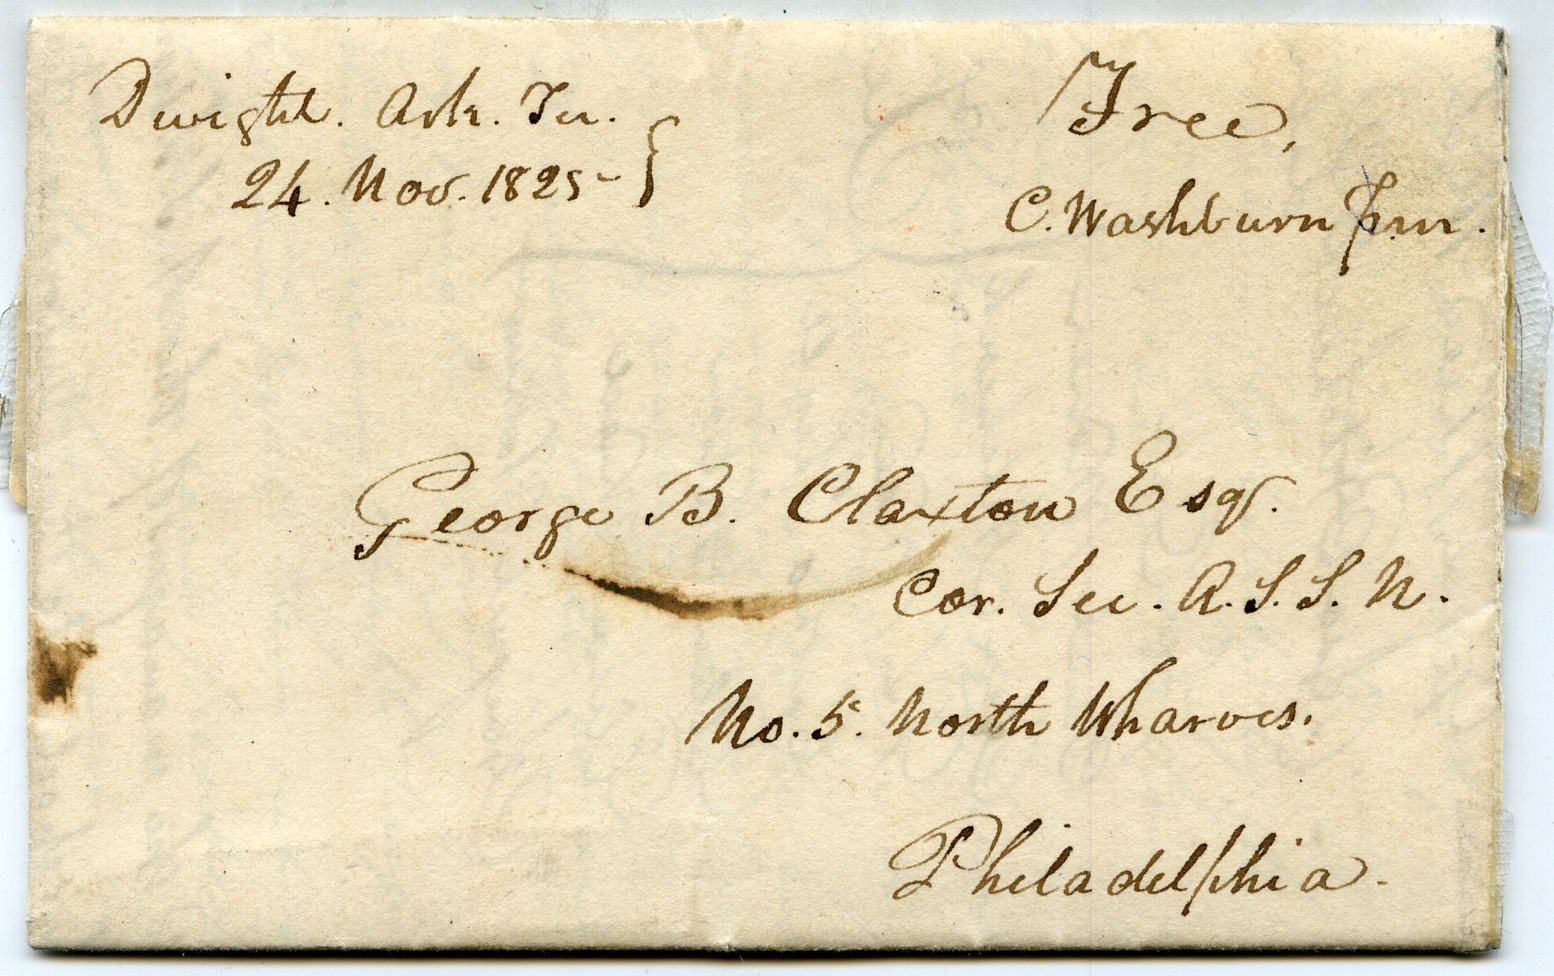 Dwight. Ark. Ter.
24. Nov. 1825
Free,
C. Washburn
George B. Claxton Esqr.
Cor. Sec. A. S. S. U.
No. 5. North Wharves.
Philadelphia.